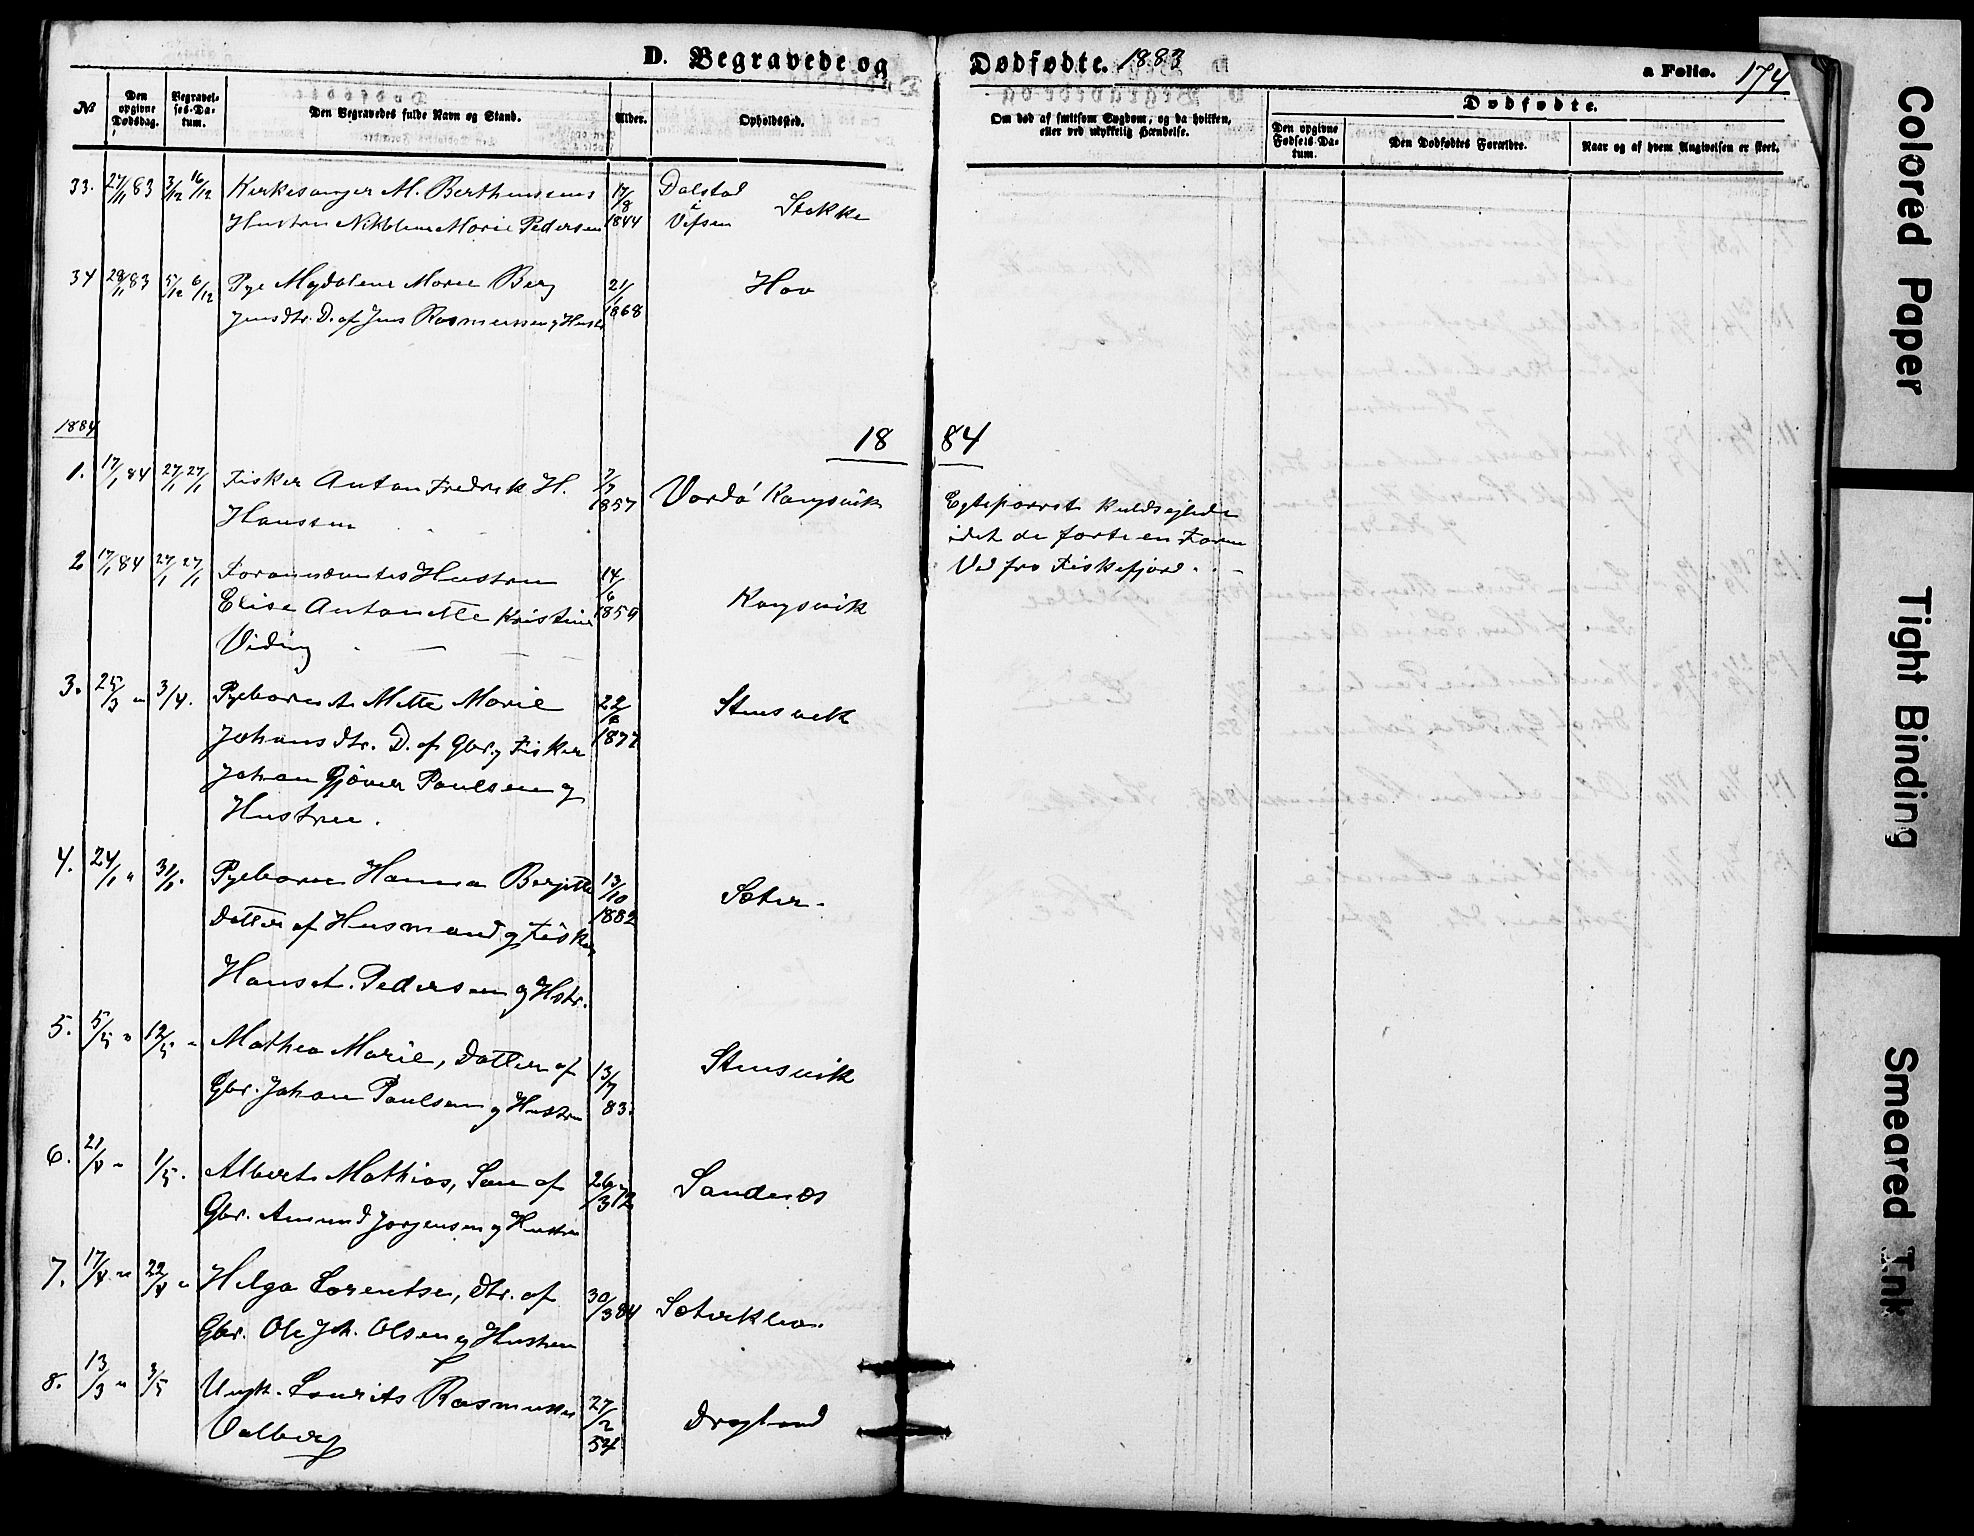 D. Begravede og Dødfødte. 1883 a Folio. 174
No
Den opgivne Dødsdag.
Begravelses-Datum.
Den Begravedes fulde Navn og Stand.
Alder.
Opholdssted.
Om død af smitsom Sygdom, og da hvilken, eller ved ulykkelig Hændelse.
Dødfødte.
Den opgivne Fødsels-Datum.
Den Dødfødtes Forældre.
Naar og af hvem Angivelsen er skeet.
33. 27/11 83 3/12 16/12 Kirkesanger M. Berthensens 17/8 Dolstad
Hustru Nikoline Marie Pedersen 1844 i Vefsen Stokke
34 29/11 83 5/12 6/12 Pige Magdalena Marie Berg 21/1 Hov
Jensdtr. D. af Jens Rasmussen og Hustr 1868
1884
18 84
1. 17/1 84 27/1 27/1 Fisker Anton Fredrik H. 7/7 Kongsvik
Hanssen 1857
Egteparret kuldseilede
idet de førte en Favn
Ved fra Fiskefjord.
2 17/1 84 27/1 27/1 Forannævntes Hustru 14/6
Elise Antonette Kristine 1859 Kongsvik
Viding
3. 25/3 " 3/4. Pigebarnet Mette Marie 22/6 Stensvik
Johansdtr. D. af Gbr. og Fisker 1877
Johan Gjøver Paulsen og
Hustru.
4. 24/1 " 31/1. Pigebarnet Hanna Bergitte 13/10 Sæter.
Datter af Husmand og Fisker 1882
Hans A. Pedersen og Hstr.
5. 5/5 " 12/5 " Mathea Marie, Datter af 13/7 Stensvik
Gbr. Johan Paulsen og Hustru 83.
6. 21/4 " 1/5. Albert Mathias, Søn af 26/3 72 Sandnes
Gbr. Amund Jørgensen og Hustru
7. 17/4 " 22/4 " Helga Lorentse, Dtr. af 30/3 84
Gbr. Ole Joh. Olsen og Hustru
8. 13/3 " 3/5 Ungk. Laurits Rasmussen 27/2 Dragland
Valberg 54
Colored Paper
Tight Binding
Smeared Ink